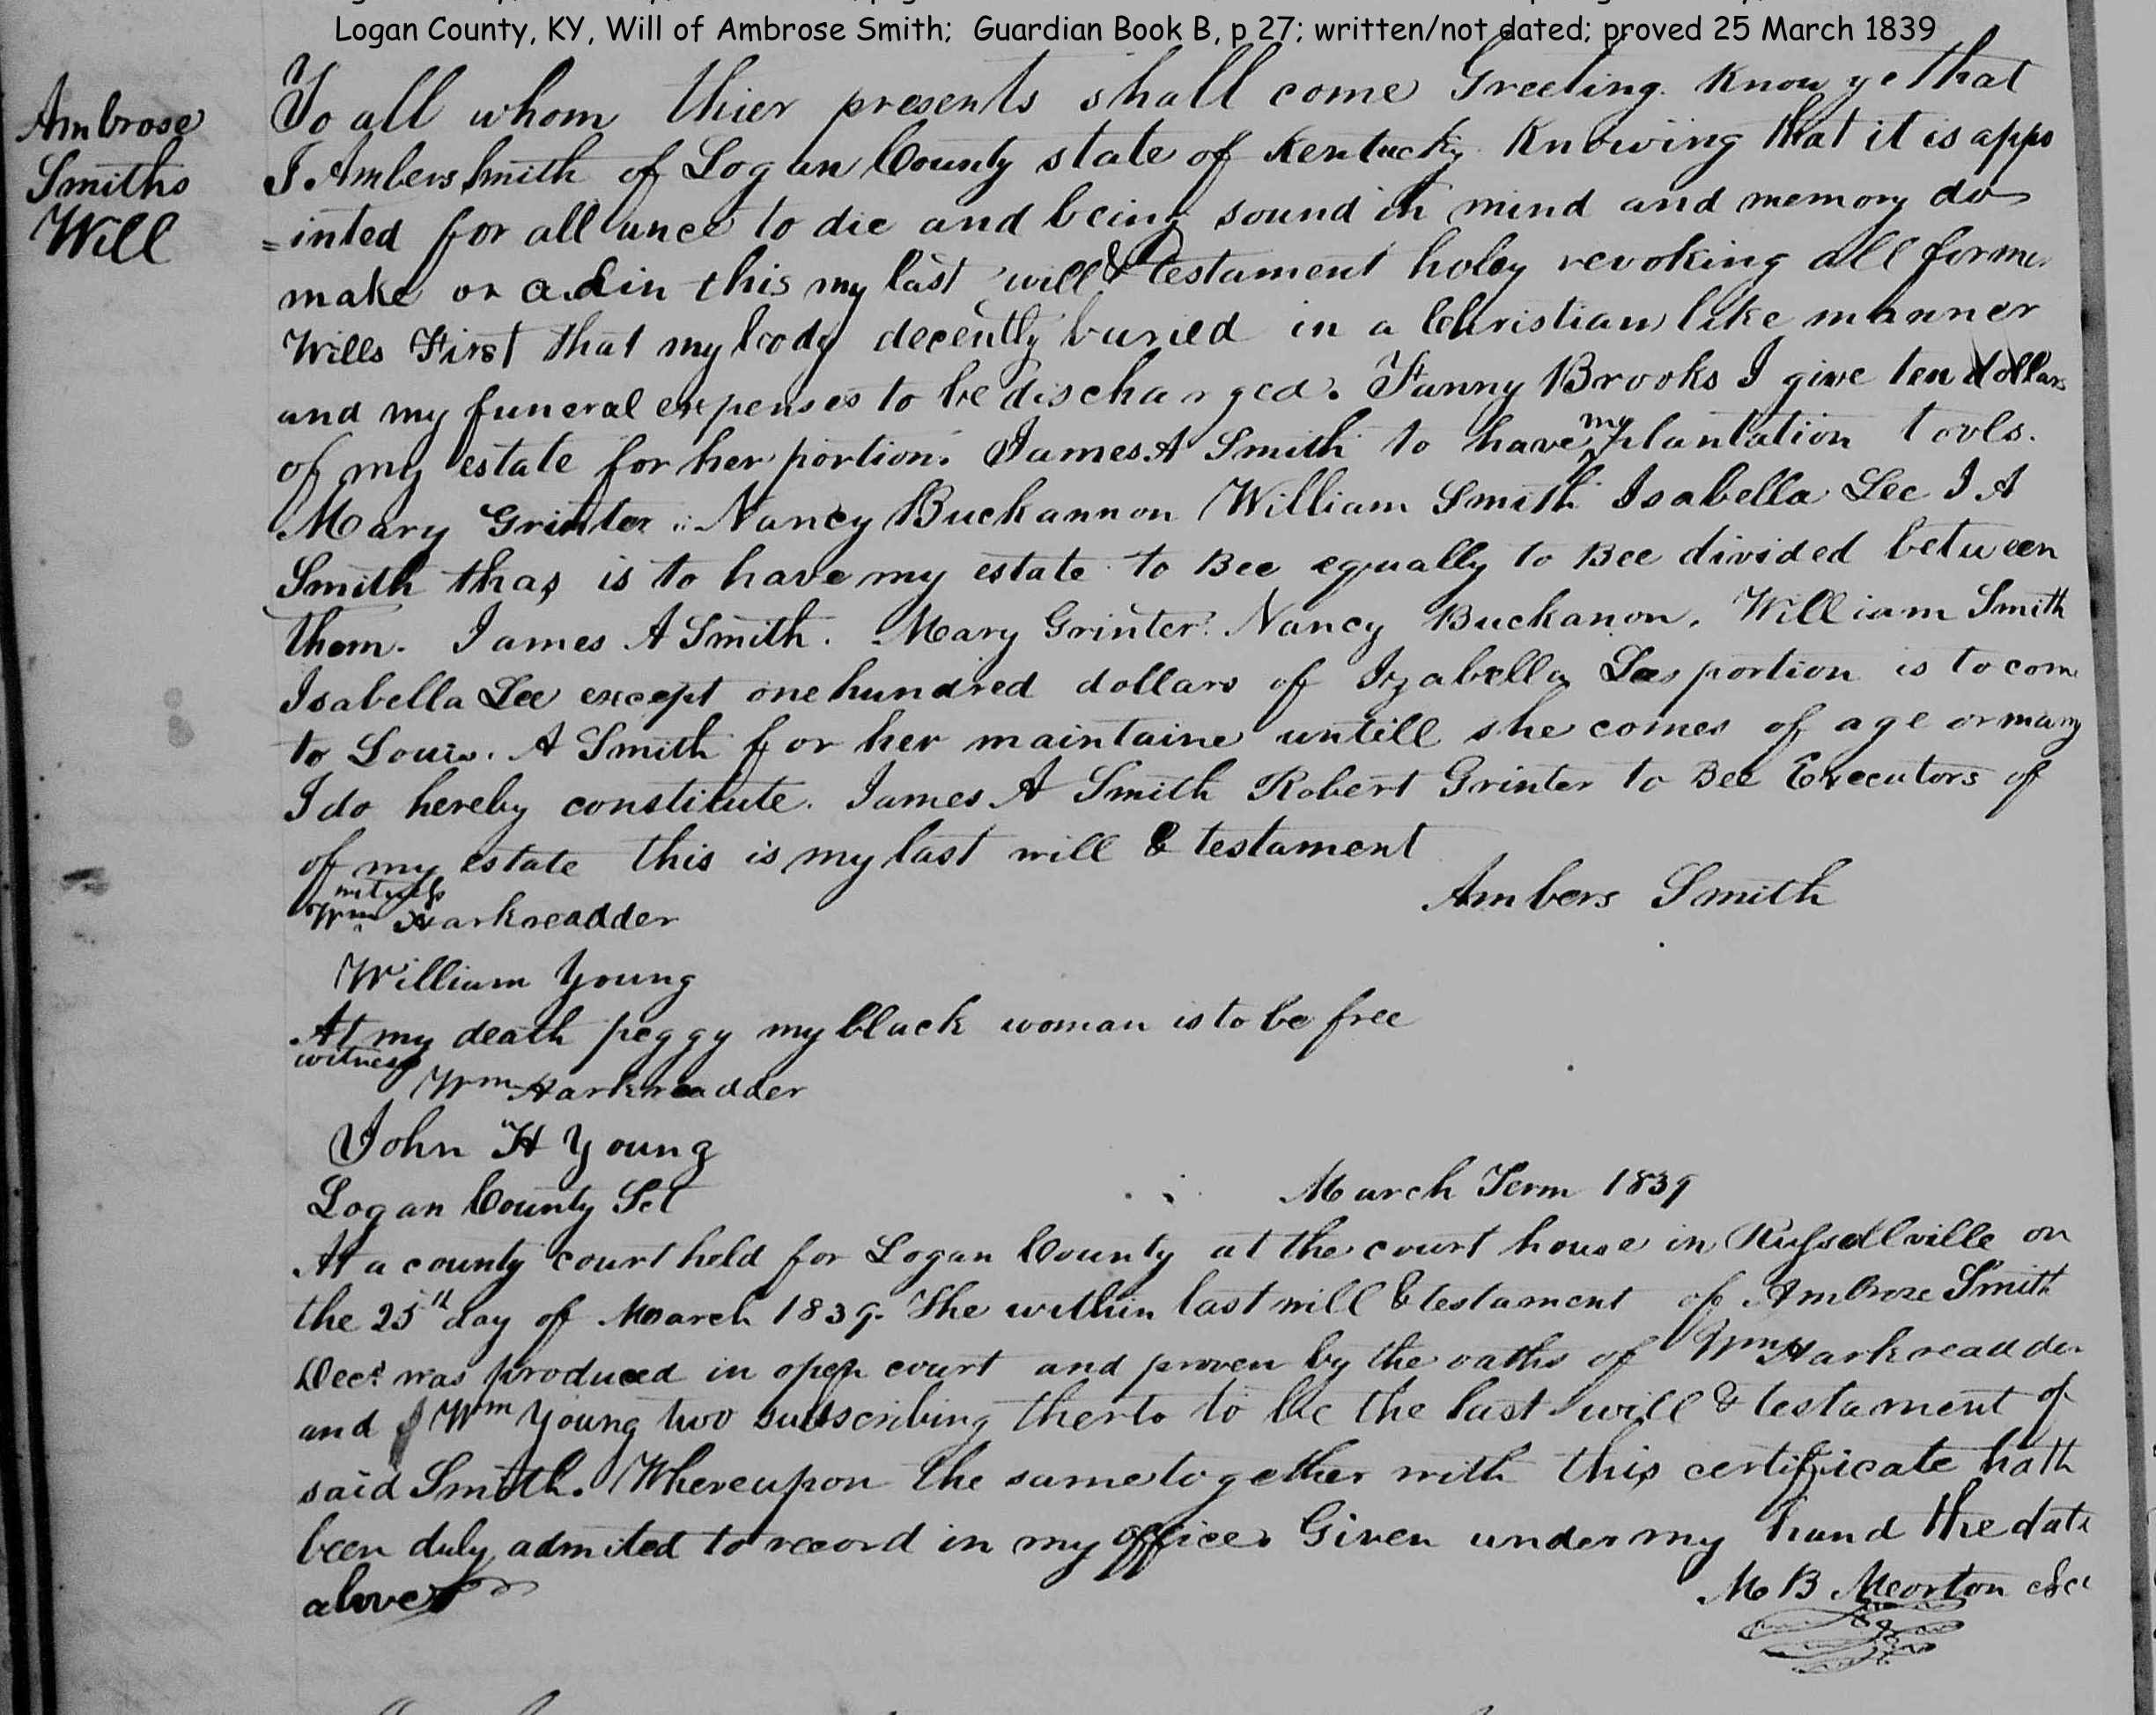 Logan County, KY, Will of Ambrose Smith; Guardian Book B, p 27; written/not dated; proved 25 March 1839
Ambrose
Smiths
Will
To all whom thier presents shall come Greeting. Know ye that
I Ambers Smith of Logan County state of Kentucky Knowing that it is appo
=inted for all unce to die and being sound in mind and memory do
make or adin this my last will & testament holey revoking all former
Wills First that my body decently buried in a Christian like manner
and my funeral expenses to be discharged. Fanny Brooks I give ten dollars
of my estate for her portion. James A Smith to have my plantation tools.
Mary Grinter Nancy Buckannon William Smith Isabella Lee J A
Smith thas is to have my estate to Bee equally to Bee divided between
them. James A Smith. Mary Grinter. Nancy Buckanon. William Smith
Isabella Lee except one hundred dollars of Izabella Lees portion is to com
to Louis. A Smith for her maintaine untill she comes of age or mary
I do hereby constitute. James A Smith Robert Grinter to Bee Executors of
of my estate this is my last will & testament
Ambers Smith
witness
Wm Harkreadder
William Young
At my death peggy my black woman is to be free
witness
Wm Harkreadder
John H Young
Logan County Sct
March Term 1839
At a county court held for Logan County at the court house in Russellville on
the 25th day of March 1839. The within last will & testament of Ambrose Smith
Decd was produced in open court and proven by the oaths of Wm Harkreadder
and Wm Young two subscribing therto to be the last will & testament of
said Smith. Whereupon the same together with this certificate hath
been duly admited to record in my office. Given under my hand the date
above
M B Morton